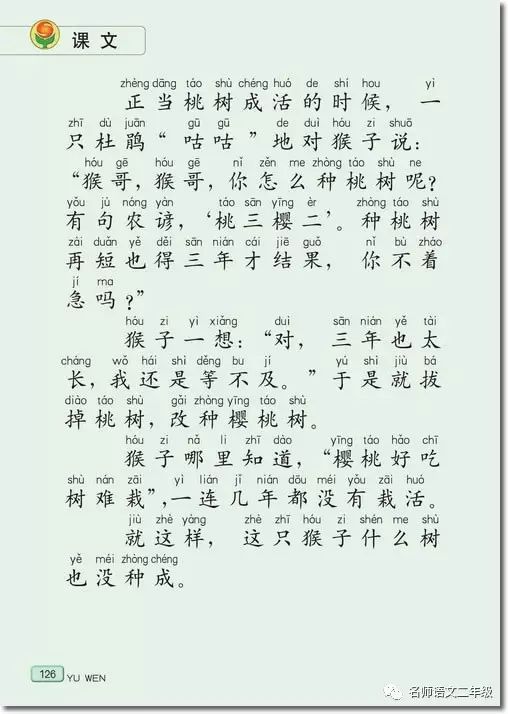 课文
zhèng dāng táo shù chéng huó de shí hou yì
正当桃树成活的时候，一
zhī dù juān gū gū de duì hóu zi shuō
只杜鹃“咕咕”地对猴子说：
hóu gē hóu gē nǐ zěn me zhòng táo shù ne
“猴哥，猴哥，你怎么种桃树呢？
yǒu jù nóng yàn táo sān yīng èr zhòng táo shù
有句农谚，‘桃三樱二’。种桃树
zài duǎn yě děi sān nián cái jiē guǒ nǐ bù zháo
再短也得三年才结果，你不着
jí ma
急吗？”
hóu zi yì xiǎng duì sān nián yě tài
猴子一想：“对，三年也太
cháng wǒ hái shì děng bu jí yú shì jiù bá
长，我还是等不及。”于是就拔
diào táo shù gǎi zhòng yīng táo shù
掉桃树，改种樱桃树。
hóu zi nǎ li zhī dào yīng táo hǎo chī
猴子哪里知道，“樱桃好吃
shù nán zāi yì lián jǐ nián dōu méi yǒu zāi huó
树难栽”，一连几年都没有栽活。
jiù zhè yàng zhè zhī hóu zi shén me shù
就这样，这只猴子什么树
yě méi zhòng chéng
也没种成。
126 YU WEN
名师语文二年级